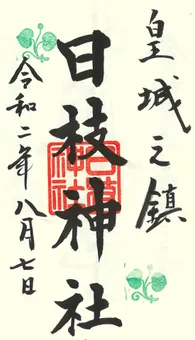 皇城之鎮
日枝神社
令和二年八月七日